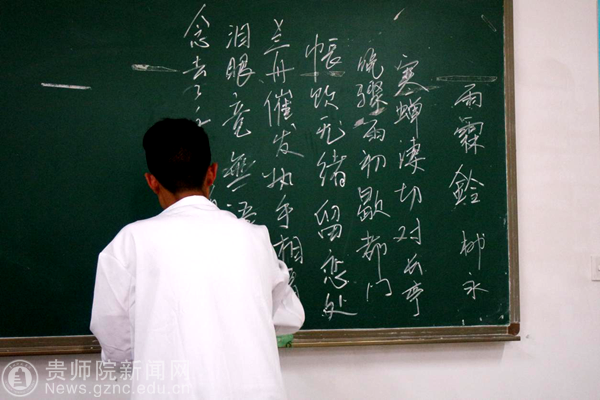 雨霖鈴 柳永
寒蝉凄切对长亭
晚骤雨初歇都门
帐饮无绪留恋处
兰舟催发执手相看
泪眼竟無语
念去去
贵师院新闻网
News.gznc.edu.cn